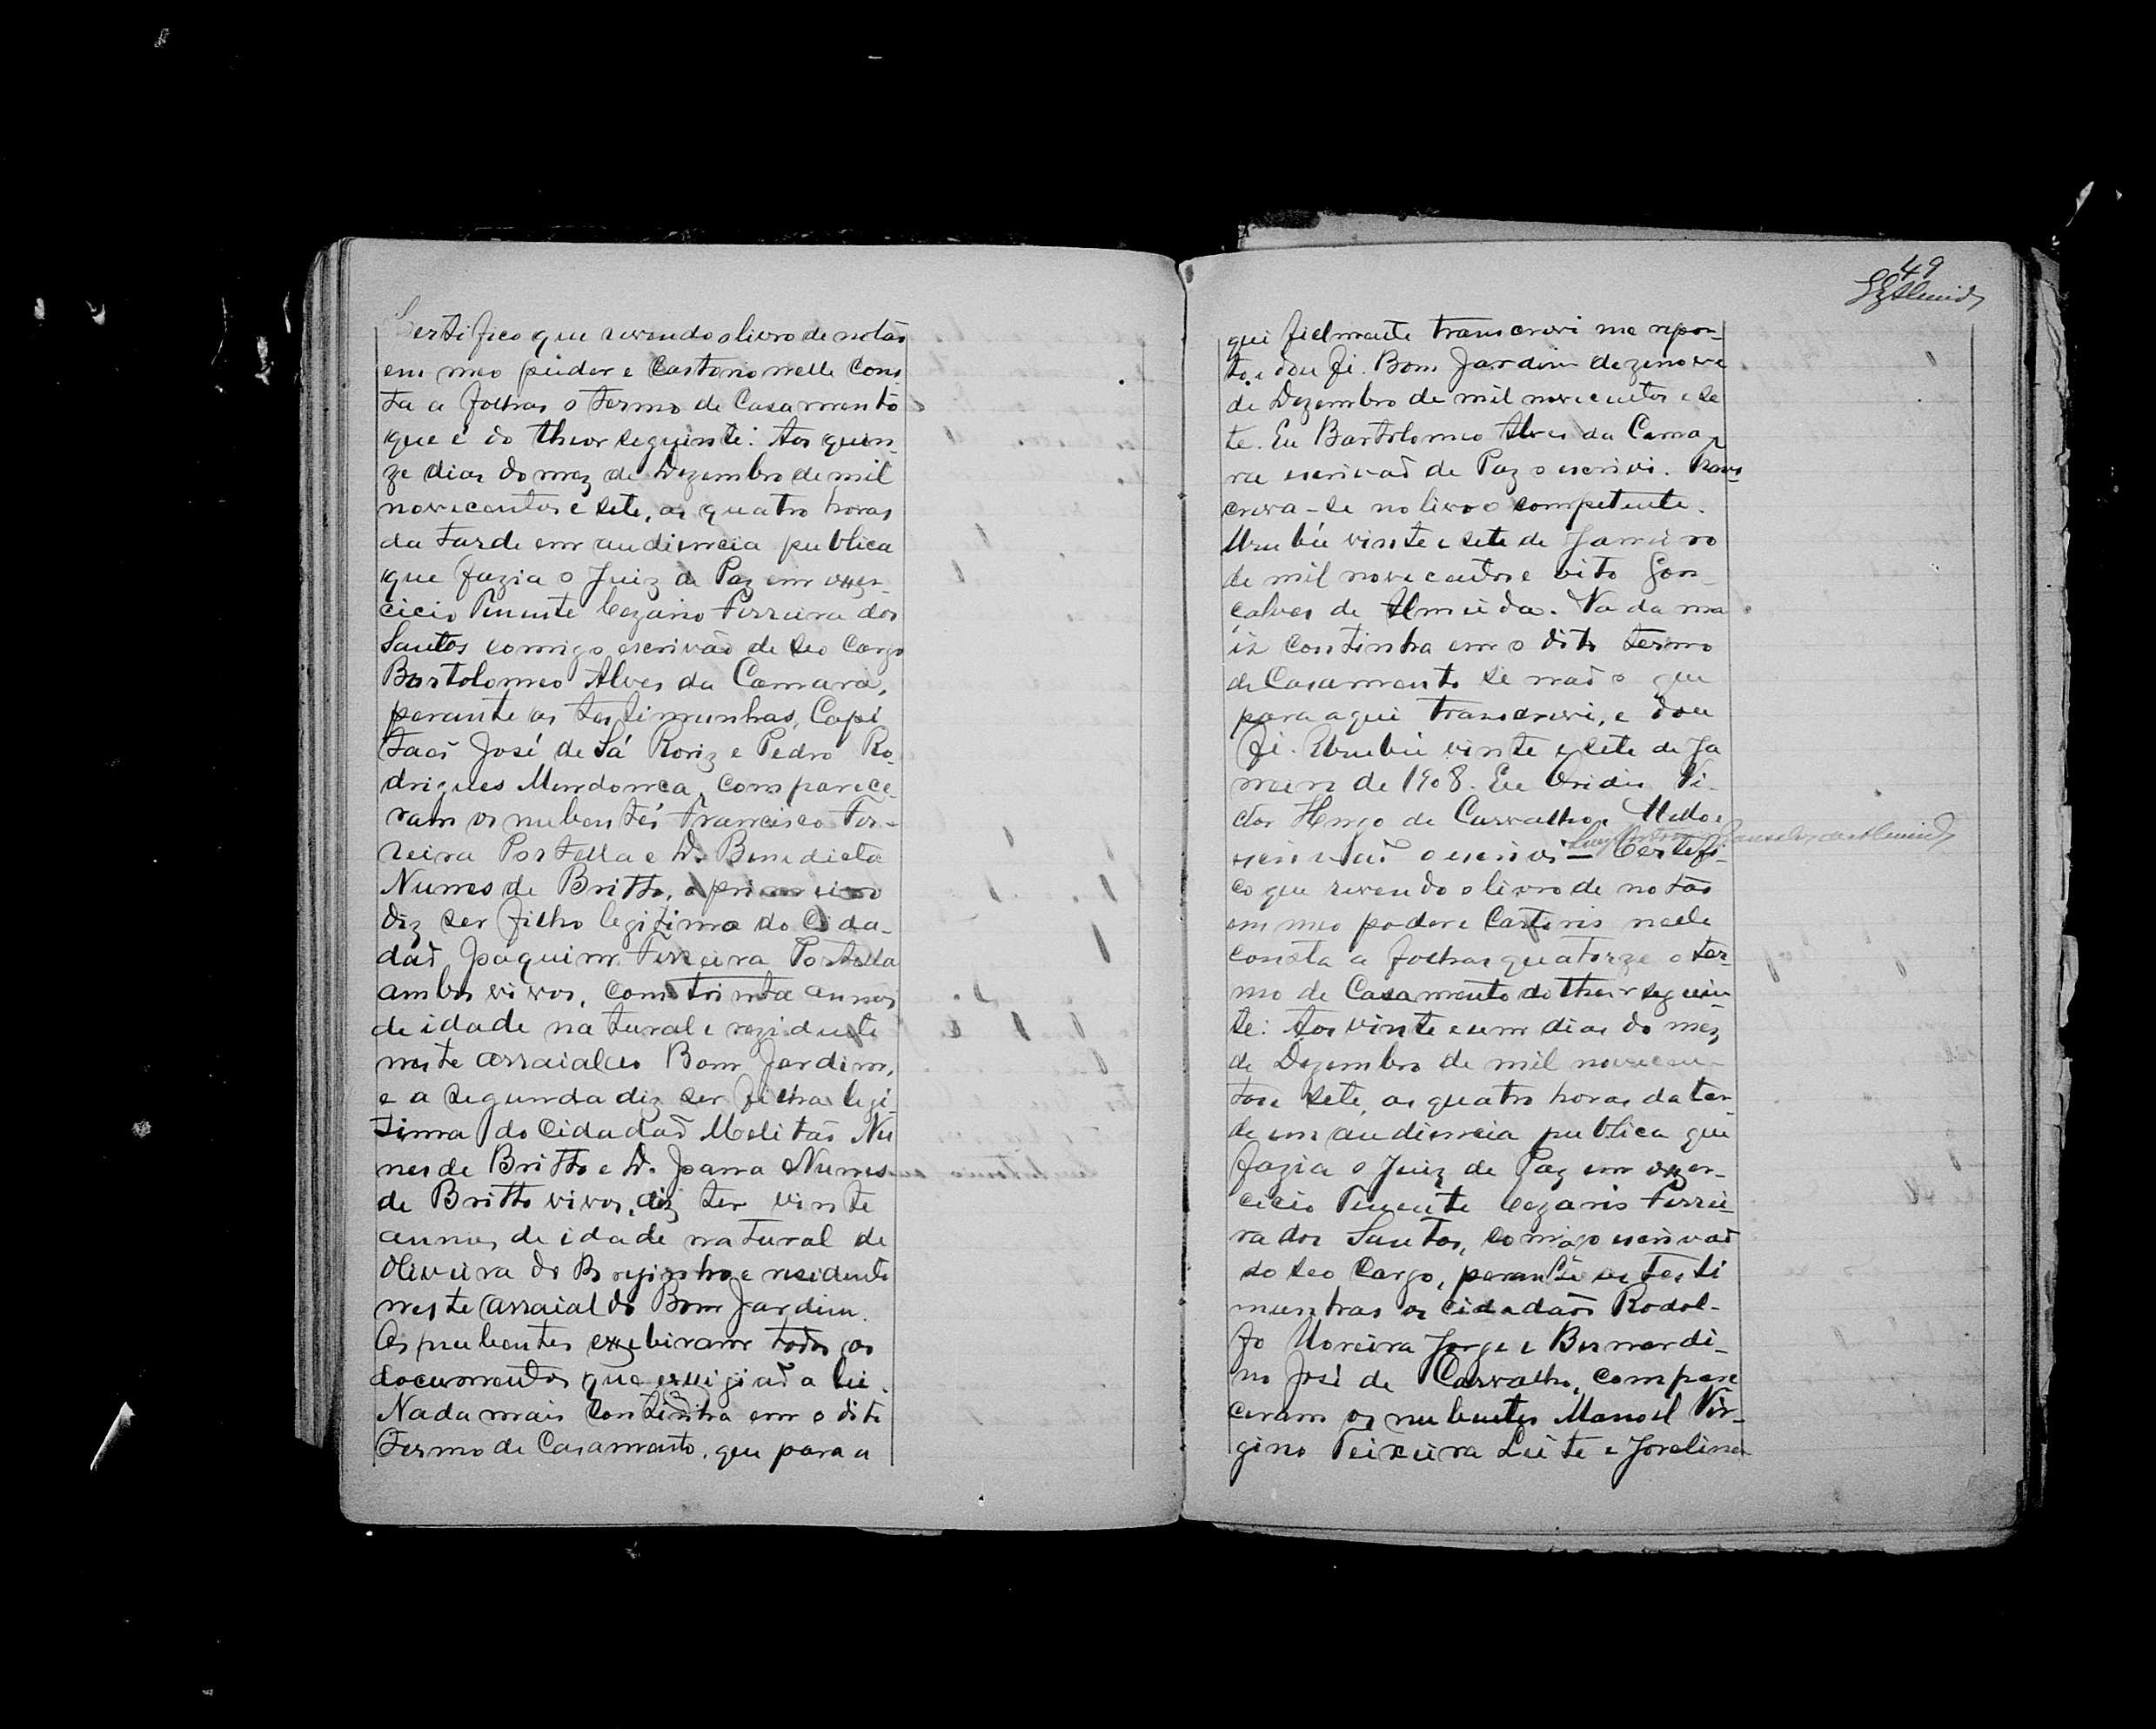 Certifico que revendo o livro de notas
em meo puder e Cartorio nelle Cons
ta a folhas o termo de Casamento
que é do theor seguinte: Aos quin-
ze dias do mez de Dezembro de mil
novecentos e sete, as quatro horas
da tarde em audiencia publica
que fazia o Juiz de Paz em exer-
cicio Tenente Cezario Ferreira dos
Santos comigo escrivaõ de seo cargo
Bartolomeo Alves da Camara,
perante as testimunhas, Capi
taõ José de Sá Roriz e Pedro Ro-
drigues Mendonca, comparece-
ram os nubentes Francisco Fer-
reira Portella e D. Benedicta
Nunes de Britto, o primeiro
diz ser filho legitimo do Cida-
daõ Joaquim Ferreira Portella
ambos vivos, com trinta annos
de idade natural e rezidente
neste arraial do Bom Jardim,
e a segunda diz ser filha legi-
tima do Cidadaõ Melitaõ Nu
nes de Britto e D. Joana Nunes
de Britto vivos, diz ter vinte
annos de idade natural de
Oliveira do Brejinho e residente
neste arraial do Bom Jardim.
Os nubentes exzebiram todos os
documentos que exigiaõ a lei.
Nada mais continha em o dito
termo de Casamento, que para a
49
qui fielmente transcrevi me repor-
to e dou fé. Bom Jardim dezenove
de Dezembro de mil novecentos e se
te. Eu Bartolomeo Alves da Cama-
ra escrivaõ de Paz o escrivi. Trans-
creva-se no livro competente.
Urubú vinte e sete de Janeiro
de mil novecentos e oito Gon-
calves de Almeida. Nada ma
is continha em o dito termo
de Casamento se naõ o que
para aqui transcrevi, e dou
fé. Urubú vinte e sete de Ja
neiro de 1908. Eu Ovidio Vi-
ctor Hugo de Carvalho e Mello
escrivaõ o escrivi — Certifi-
co que revendo o livro de notas
em meo poder e Cartorio nelle
consta a folhas quatorze o ter-
mo de Casamento do theor seguin
te: Aos vinte e um dias do mez
de Dezembro de mil novecen-
tos e sete, as quatro horas da tar-
de em audiencia publica que
fazia o Juiz de Paz em exzer-
cicio Tenente Cezario Ferrei-
ra dos Santos, comigo escrivaõ
do seo Cargo, perante as testi
munhas os cidadaõs Rodol-
fo Moreira Jorge e Bernardi-
no José de Carvalho, compare
ceram os nubentes Manoel Vir-
gino Teixeira Leite e Jovelina